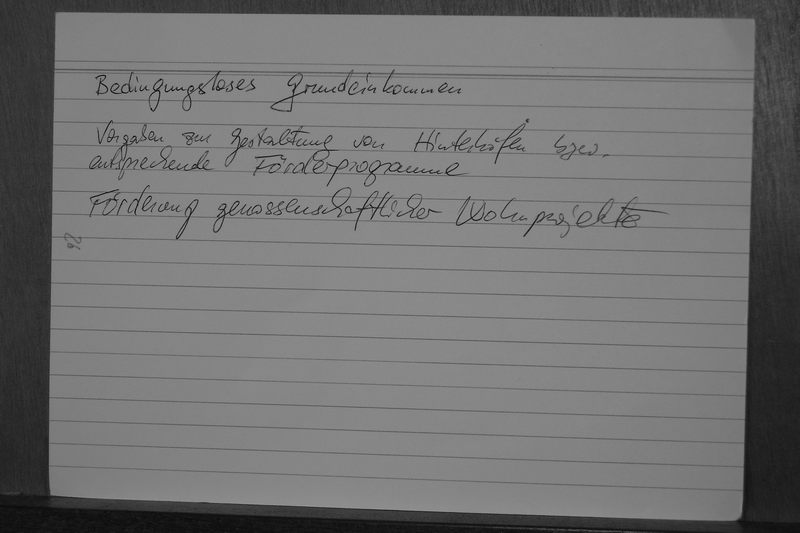 Bedingungsloses Grundeinkommen
Vorgaben zur Gestaltung von Hinterhöfen bzw.
entsprechende Förderprogramme
Förderung genossenschaftlicher Wohnprojekte
26